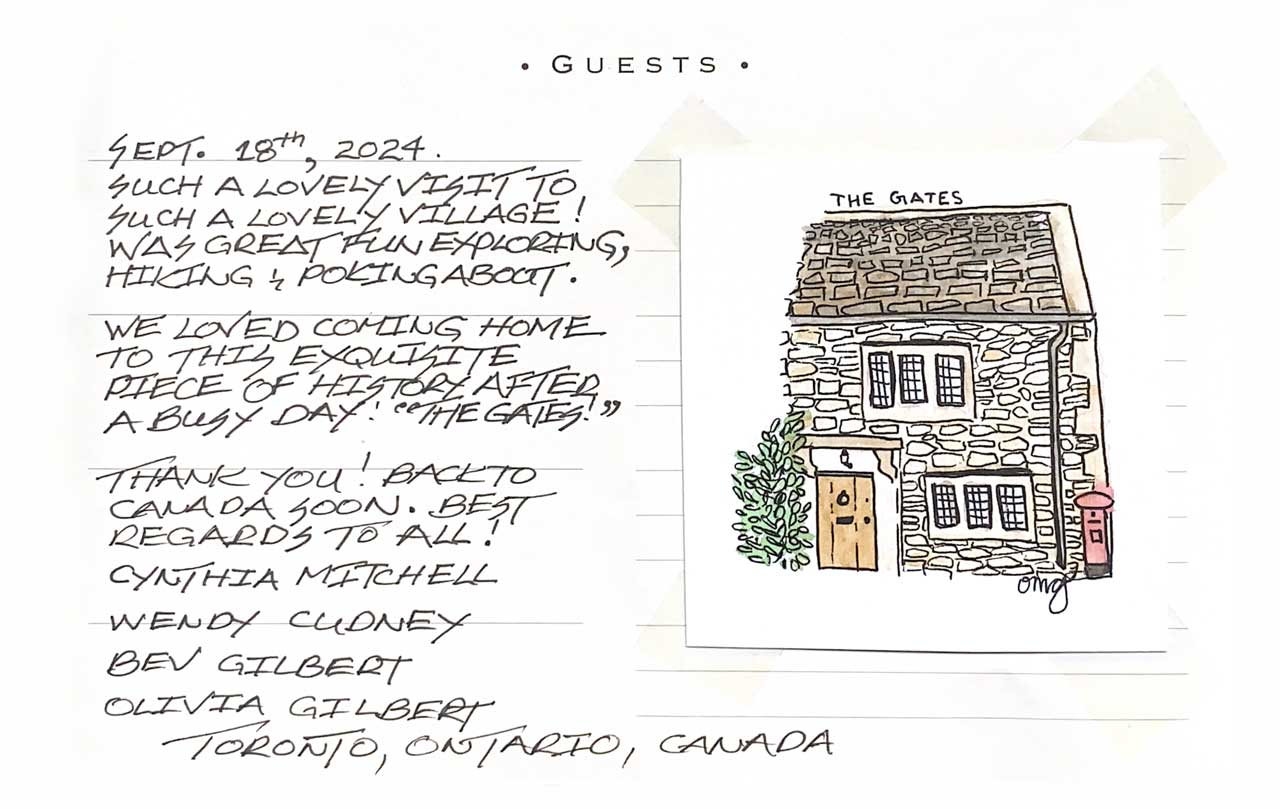 • GUESTS •
SEPT. 18th, 2024.
SUCH A LOVELY VISIT TO
SUCH A LOVELY VILLAGE!
WAS GREAT FUN EXPLORING,
HIKING & POKING ABOUT.
WE LOVED COMING HOME
TO THIS EXQUISITE
PIECE OF HISTORY AFTER
A BUSY DAY! "THE GATES!"
THANK YOU! BACK TO
CANADA SOON. BEST
REGARDS TO ALL!
CYNTHIA MITCHELL
WENDY CUDNEY
BEV GILBERT
OLIVIA GILBERT
TORONTO, ONTARIO, CANADA
THE GATES
omg